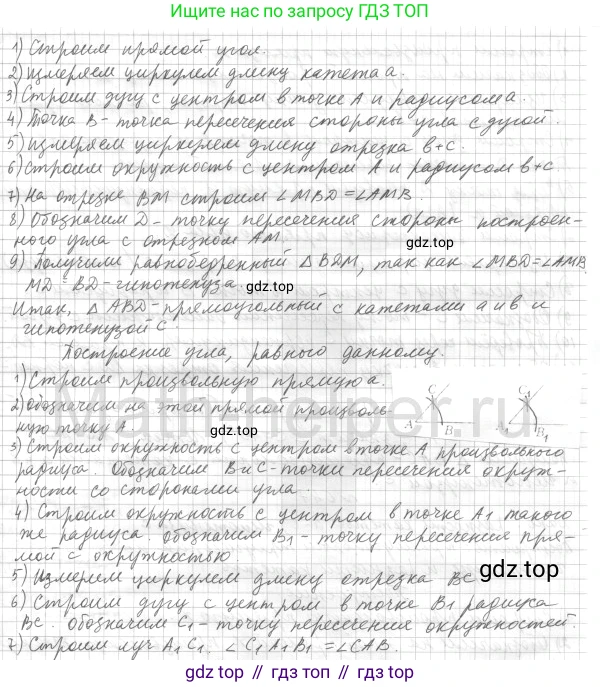 Ищите нас по запросу ГДЗ ТОП
1) Строим прямой угол.
2) Измеряем циркулем длину катета a.
3) Строим дугу с центром в точке A и радиусом a.
4) Точка B - точка пересечения стороны угла с дугой.
5) Измеряем циркулем длину отрезка b+c.
6) Строим окружность с центром A и радиусом b+c
7) На отрезке BM строим ∠MBD=∠AMB.
8) Обозначим D - точку пересечения стороны построен-
ного угла с отрезком AM.
9) Получили равнобедренный △BDM, так как ∠MBD=∠AMB,
MD = BD - гипотенуза
gdz.top
Итак, △ABD - прямоугольный с катетами a и b и
гипотенузой c.
Построение угла, равного данному.
1) Строим произвольную прямую a.
2) Обозначим на этой прямой произволь-
ную точку A.
gdz.top
C
A
B
C
A
B1
Math-helper.ru
3) Строим окружность с центром в точке A произвольного
радиуса. Обозначим B и C - точки пересечения окруж-
ности со сторонами угла.
4) Строим окружность с центром в точке A1 такого
же радиуса. Обозначим B1 - точку пересечения пря-
мой с окружностью
5) Измерим циркулем длину отрезка BC
gdz.top
6) Строим дугу с центром в точке B1 радиуса
BC. Обозначим C1 - точку пересечения окружностей.
7) Строим луч A1C1, ∠C1A1B1 = ∠CAB.
gdz.top // гдз.топ // гдз топ // gdz top